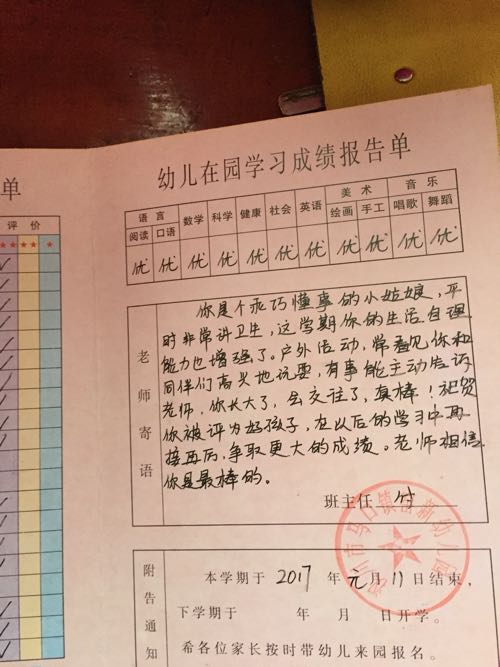 单
评 价
★★ ★★ ★
幼儿在园学习成绩报告单
语言 数学 科学 健康 社会 英语 美术 音乐
阅读 口语 绘画 手工 唱歌 舞蹈
优 优 优 优 优 优 优 优 优 优 优
老师寄语
你是个乖巧懂事的小姑娘,平
时非常讲卫生,这学期你的生活自理
能力也增强了。户外活动,常看见你和
同伴们高兴地玩耍,有事能主动告诉
老师,你长大了,会交往了,真棒!祝贺
你被评为好孩子,在以后的学习中再
接再厉,争取更大的成绩。老师相信
你是最棒的。
班主任 付
市马口镇 新幼儿园
附告通知
本学期于 2017 年 元 月 11 日结束,
下学期于 年 月 日开学。
希各位家长按时带幼儿来园报名。